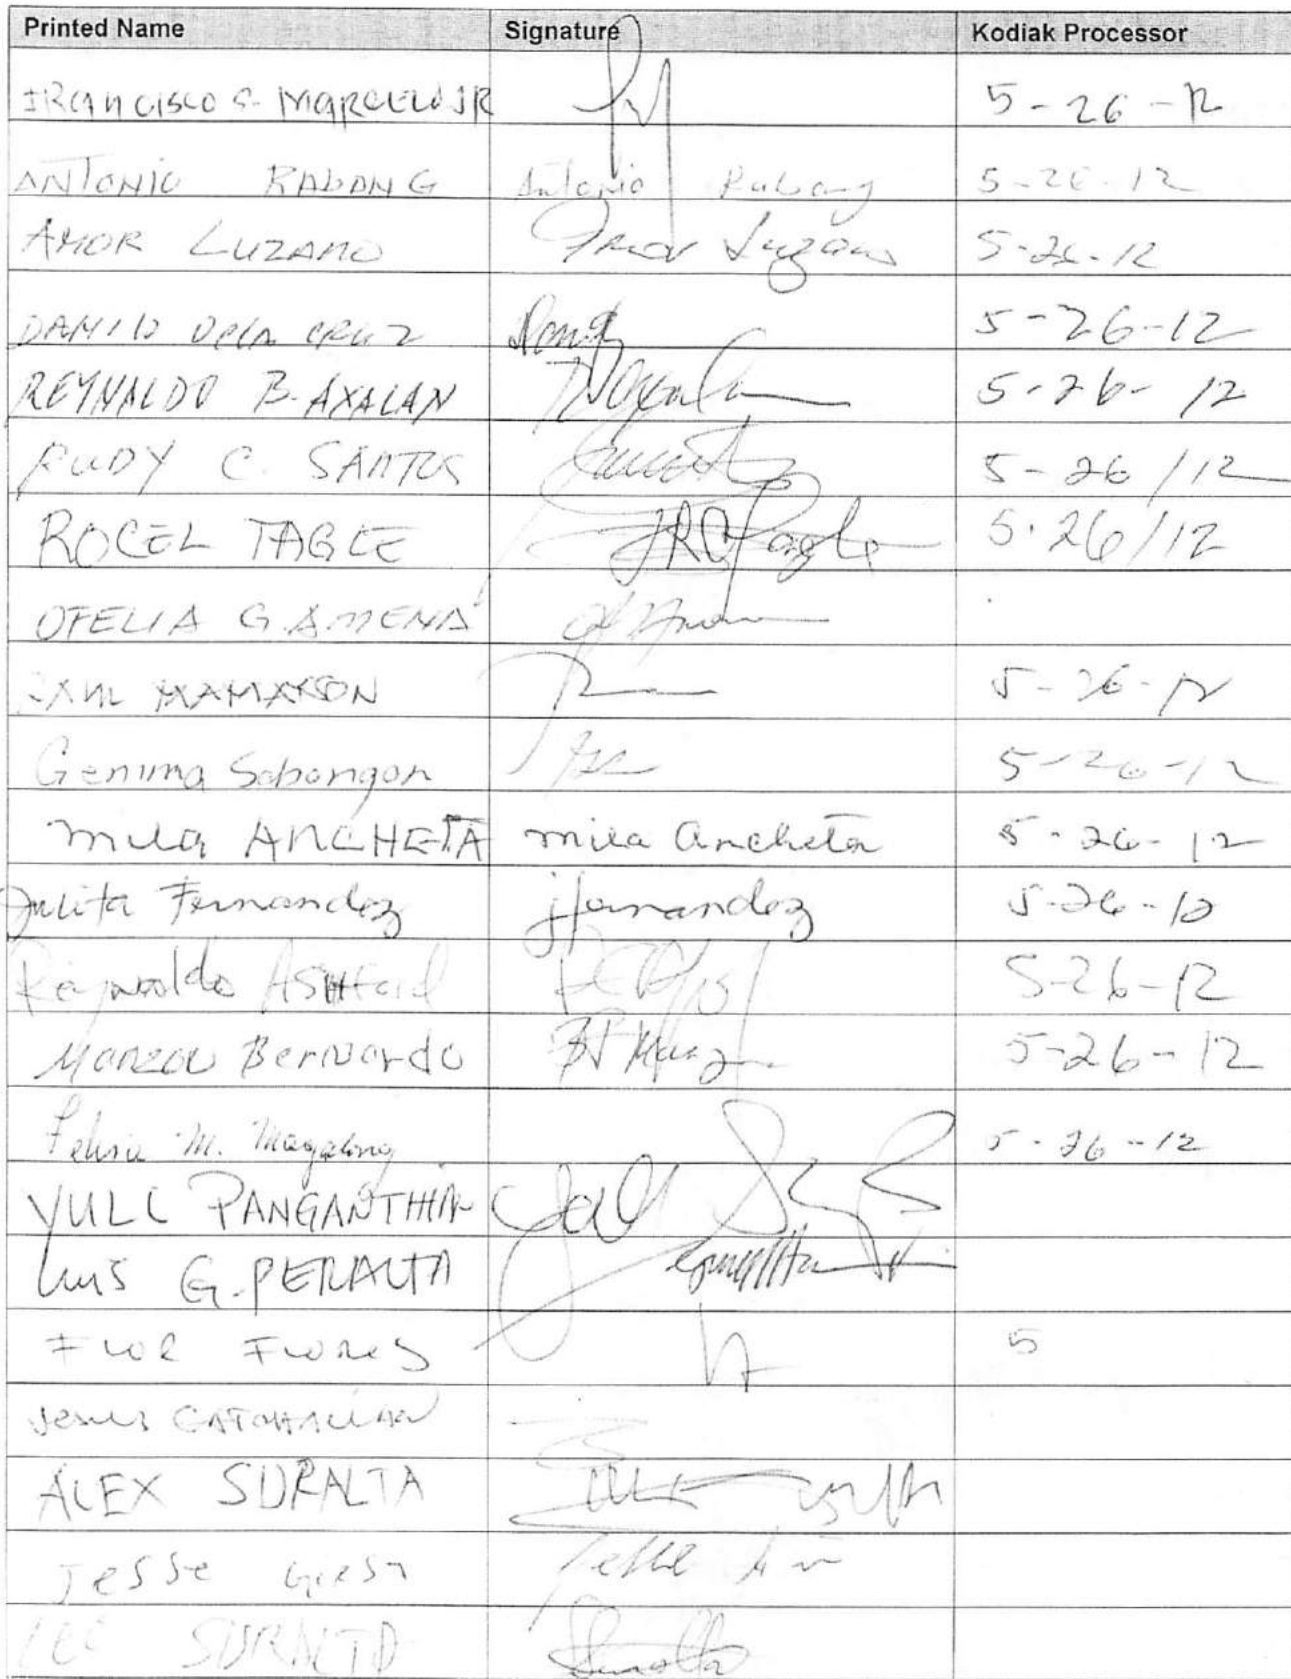 Printed Name Signature Kodiak Processor
FRANCISCO S. MARCELO JR 5-26-12
ANTONIO RABANG Antonio Rabang 5-26-12
AMOR LUZANO Amor Luzano 5-26-12
DANILO DELA CRUZ 5-26-12
REYNALDO B. AXALAN 5-26-12
RUDY C. SANTOS 5-26/12
ROCEL TAGLE JRC Tagle 5.26/12
OFELIA GAMENA
MAMARON 5-26-12
Gemma Sabangan 5-26-12
mila ANCHETA mila ancheta 5-26-12
Julita Fernandez jfernandez 5-26-12
Reynaldo 5-26-12
Manzon Bernardo 5-26-12
Felisa M. Magalong 5-26-12
YULL PANGANTIHIN
LUIS G. PERALTA
FLOR FLORES 5
Jesus CATCHALIAN
ALEX SURALTA
Jesse
LEE SURALTA Suralta